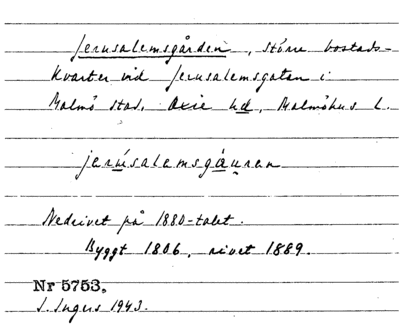 Jerusalemsgården, större bostads-
kvarter vid Jerusalemsgatan i
Malmö stad, Oxie hd, Malmöhus l.
jerúsalemsgàuran
Nedrivet på 1880-talet.
Byggt 1806, rivet 1889.
Nr 5753,
S. Ingers 1943.